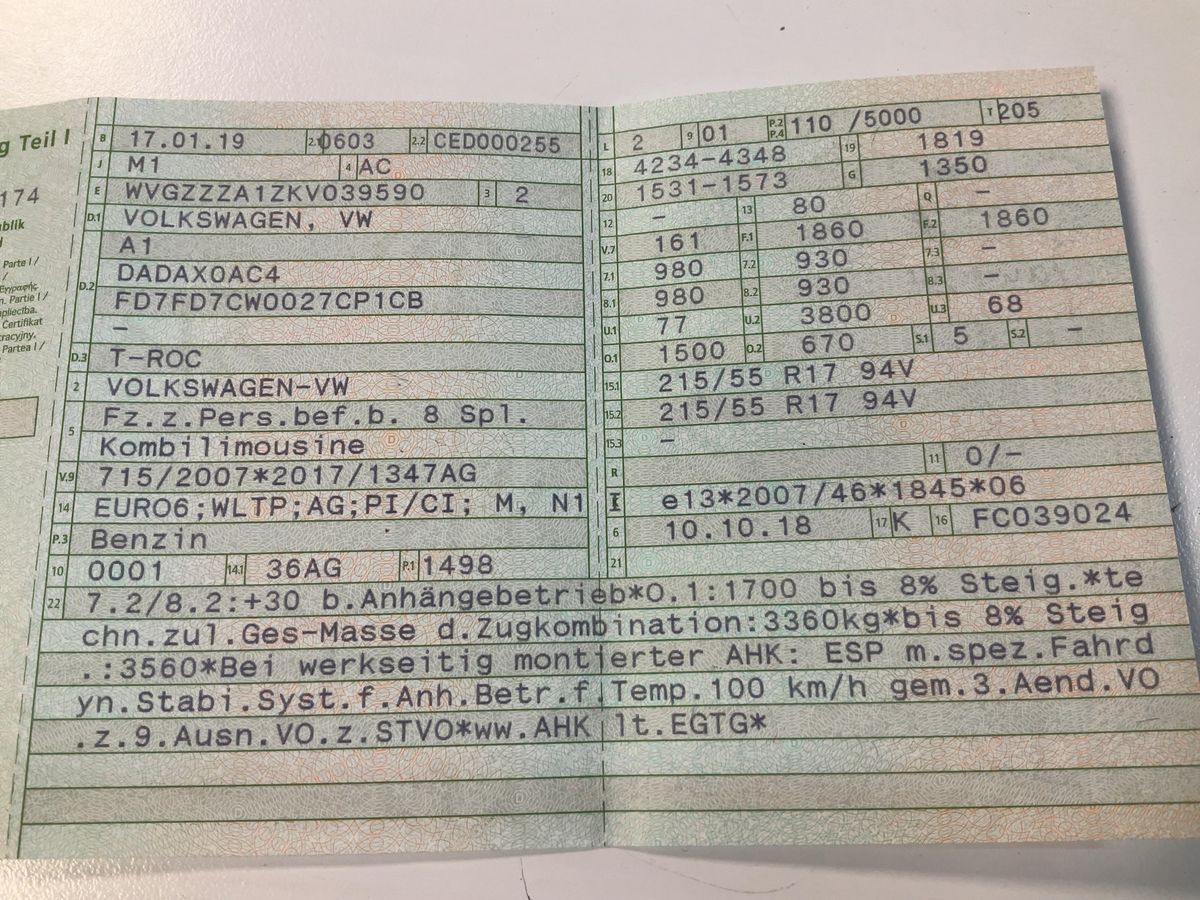 g Teil I
174
ublik
d
Parte I /
/
Εγγραφής
n. Partie I /
pliecība.
Certifikat
racyjny,
Partea I /
B 17.01.19 2.1 0603 2.2 CED000255
J M1 4 AC
E WVGZZZA1ZKV039590 3 2
D.1 VOLKSWAGEN, VW
A1
D.2 DADAX0AC4
FD7FD7CW0027CP1CB
–
D.3 T-ROC
2 VOLKSWAGEN-VW
5 Fz.z.Pers.bef.b. 8 Spl.
Kombilimousine
V.9 715/2007*2017/1347AG
14 EURO6;WLTP;AG;PI/CI; M, N1
P.3 Benzin
10 0001 14.1 36AG P.1 1498
L 2 9 01 P.2 P.4 110 /5000 T 205
18 4234-4348 19 1819
20 1531-1573 G 1350
12 – 13 80 Q –
V.7 161 F.1 1860 F.2 1860
7.1 980 7.2 930 7.3 –
8.1 980 8.2 930 8.3 –
U.1 77 U.2 3800 U.3 68
O.1 1500 O.2 670 S.1 5 S.2 –
15.1 215/55 R17 94V
15.2 215/55 R17 94V
15.3 –
R 11 0/-
K e13*2007/46*1845*06
6 10.10.18 17 K 16 FC039024
21
22 7.2/8.2:+30 b.Anhängebetrieb*O.1:1700 bis 8% Steig.*te
chn.zul.Ges-Masse d.Zugkombination:3360kg*bis 8% Steig
.:3560*Bei werkseitig montierter AHK: ESP m.spez.Fahrd
yn.Stabi.Syst.f.Anh.Betr.f.Temp.100 km/h gem.3.Aend.VO
.z.9.Ausn.VO.z.STVO*ww.AHK lt.EGTG*